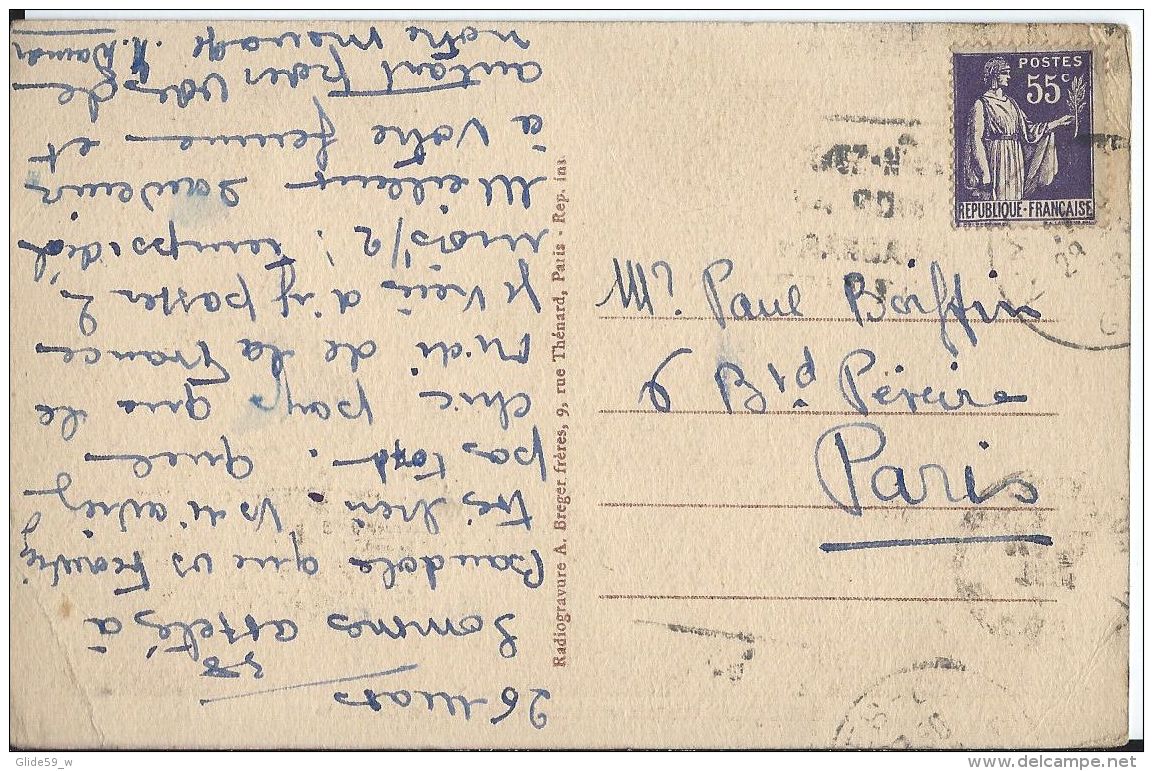 26 Mars 38
Sommes arrêtés à
Bandole que vs trouviez
très bien. Vs n'aviez
pas tort. quel
chic pays que le
midi de la France
Je viens d'y passer 2
mois 1/2 : temps idéal
Meilleur souvenir
à votre femme et
autant pour vous de
notre ménage.
Radiogravure A. Breger frères, 9, rue Thénard, Paris - Rep. int
POSTES
55c
REPUBLIQUE-FRANCAISE
Mr. Paul Boiffin
6 Brd Péreire
Paris
Glide59_w